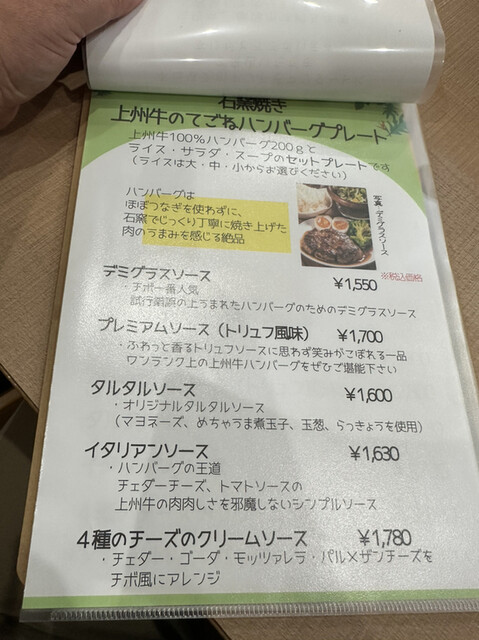 石窯焼き
上州牛のてごねハンバーグプレート
上州牛100%ハンバーグ200gと
ライス・サラダ・スープのセットプレートです
(ライスは大・中・小からお選びください)
ハンバーグは
ほぼつなぎを使わずに、
石窯でじっくり丁寧に焼き上げた
肉のうまみを感じる絶品
写真:デミグラスソース
※税込価格
デミグラスソース ¥1,550
・チボー番人気
試行錯誤の上うまれたハンバーグのためのデミグラスソース
プレミアムソース(トリュフ風味) ¥1,700
・ふわっと香るトリュフソースに思わず笑みがこぼれる一品
ワンランク上の上州牛ハンバーグをぜひご堪能下さい
タルタルソース ¥1,600
・オリジナルタルタルソース
(マヨネーズ、めちゃうま煮玉子、玉葱、らっきょうを使用)
イタリアンソース ¥1,630
・ハンバーグの王道
チェダーチーズ、トマトソースの
上州牛の肉肉しさを邪魔しないシンプルソース
4種のチーズのクリームソース ¥1,780
・チェダー・ゴーダ・モッツァレラ・パルメザンチーズを
チボ風にアレンジ